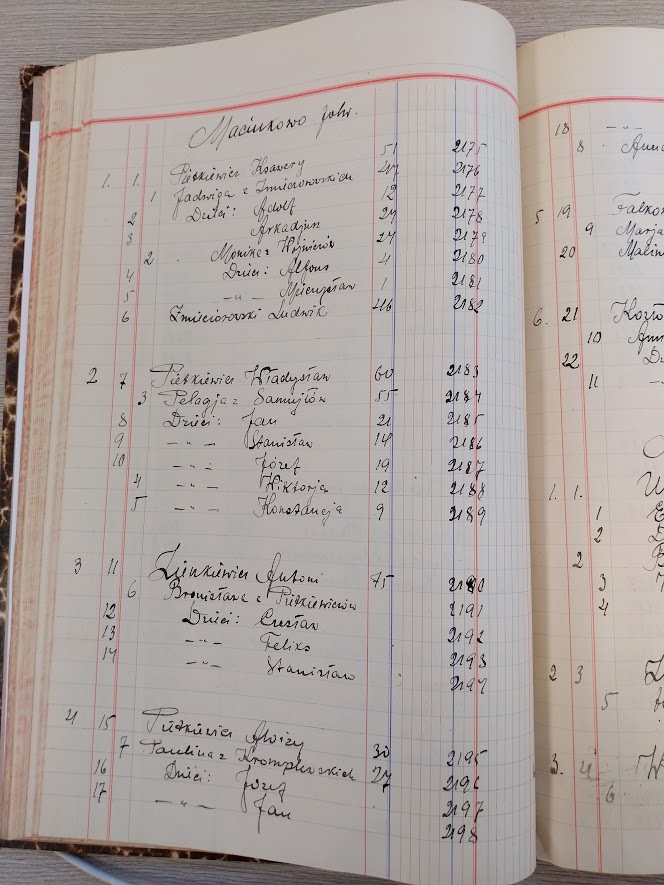 Macinkowo folw.
1. 1. Pietkiewicz Ksawery 51 2175
1 Jadwiga z Żmicierowskich 47 2176
2 Dzieci: Adolf 12 2177
3 Arkadjusz 24 2178
2 Monika z Wojniczów 27 2179
4 Dzieci: Alfons 4 2180
5 -„- Mieczysław 1 2181
6 Ludwik 46 2182
2 7 Pietkiewicz Władysław 60 2183
3 Pelagja z Samujłów 55 2184
8 Dzieci: Jan 21 2185
9 -„- Stanisław 14 2186
10 -„- Józef 19 2187
4 -„- Wiktorja 12 2188
5 -„- Konstancja 9 2189
3 11 Zienkiewicz Antoni 75 2190
6 Bronisława z Pietkiewiczów 2191
12 Dzieci: Czesław 2192
13 -„- Feliks 2193
14 -„- Stanisław 2194
4 15 Pietkiewicz Alojzy 30 2195
7 Paulina z 27 2196
16 Dzieci: Józef 2197
17 -„- Jan 2198
18 -„-
8 Anna
5 19
9 Marja
20
6. 21
10
22
11 -„
1. 1.
1
2
2
3
4
2 3
5
3. 4
6